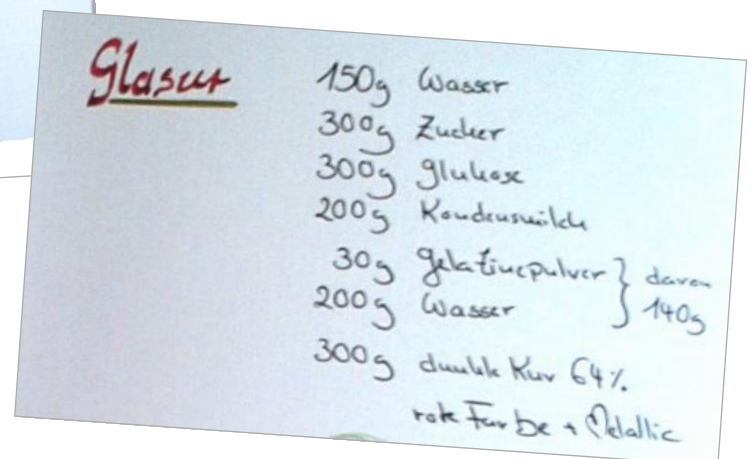 Glasur
150g Wasser
300g Zucker
300g Glukose
200g Kondensmilch
30g Gelatinepulver } davon
200g Wasser } 140g
300g dunkle Kuv 64%
rote Farbe + Metallic